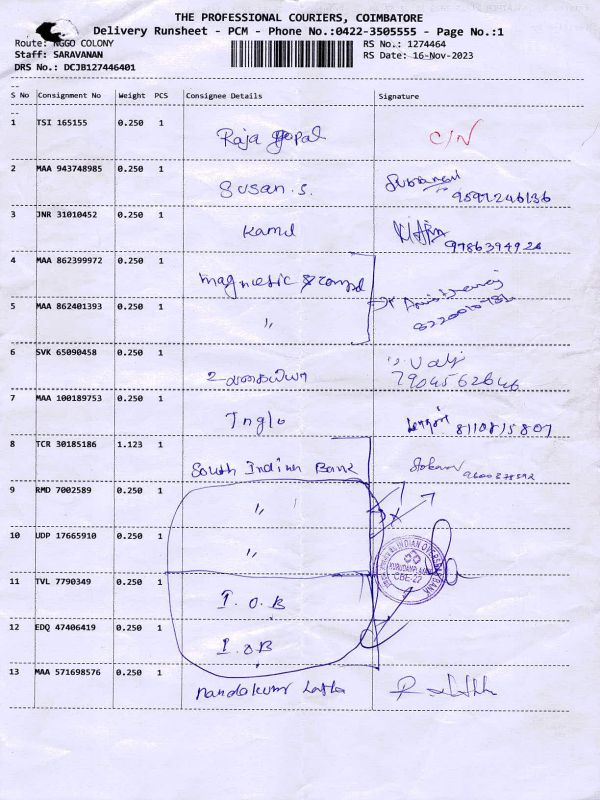 THE PROFESSIONAL COURIERS, COIMBATORE
Delivery Runsheet - PCM - Phone No.:0422-3505555 - Page No.:1
Route: NGGO COLONY
RS No.: 1274464
Staff: SARAVANAN
RS Date: 16-Nov-2023
DRS No.: DCJB127446401
S No Consignment No Weight PCS Consignee Details Signature
1 TSI 165155 0.250 1 Raja gopal C/N
2 MAA 943748985 0.250 1 Susan.S.
9597246136
3 JNR 31010452 0.250 1 Kamil
9786394926
4 MAA 862399972 0.250 1 magnetic
5 MAA 862401393 0.250 1 "
6 SVK 65090458 0.250 1
7904562646
7 MAA 100189753 0.250 1 Inglo
8110815807
8 TCR 30185186 1.123 1 South Indian Bank
9 RMD 7002589 0.250 1 "
10 UDP 17665910 0.250 1 "
INDIAN OVERSEAS BANK
CBE-22
11 TVL 7790349 0.250 1 I.O.B
12 EDQ 47406419 0.250 1 I.O.B
13 MAA 571698576 0.250 1 nandakumr